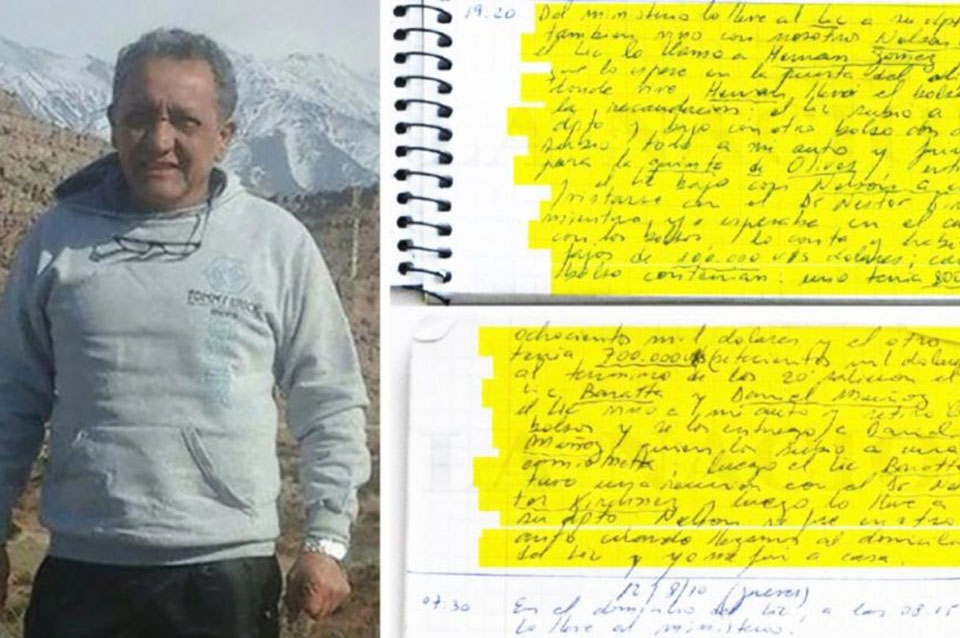 TOMMY
19.20 Del ministerio lo lleve al Lic a su dpto
tambien vino con nosotros Nelson
el Lic lo llamo a Hernan Gomez
que lo espere en la puerta del
donde vive Hernan llevó el bolso
la recaudacion; el Lic subio a
dpto y bajo con otro bolso con
subio todo a mi auto y
para la quinta de Olivos,
el Lic bajo con Nelson a
con el Dr Nestor
mientras yo esperaba en el
con los bolsos, los conte y
fajos de 100.000 u$s dolares; cada
bolso contenian: uno tenia 800
ochocientos mil dolares y el otro
tenia 700.000 u$s (setecientos mil dolares
al termino de los 20' salieron el
Lic Baratta y Daniel Muñoz
el Lic vino a mi auto y retiró los
bolsos y se los entrego a Daniel
Muñoz quien los subio a una
camioneta; luego el Lic Baratta
tuvo una reunion con el Dr Nes
tor Kirchner y luego lo lleve a
su dpto Nelson se fue en otro
auto cuando llegamos al domicilio
del Lic y yo me fui a casa.
12/8/10 (jueves)
07:30 En el domicilio del Lic, a las 08.15
lo lleve al ministerio.